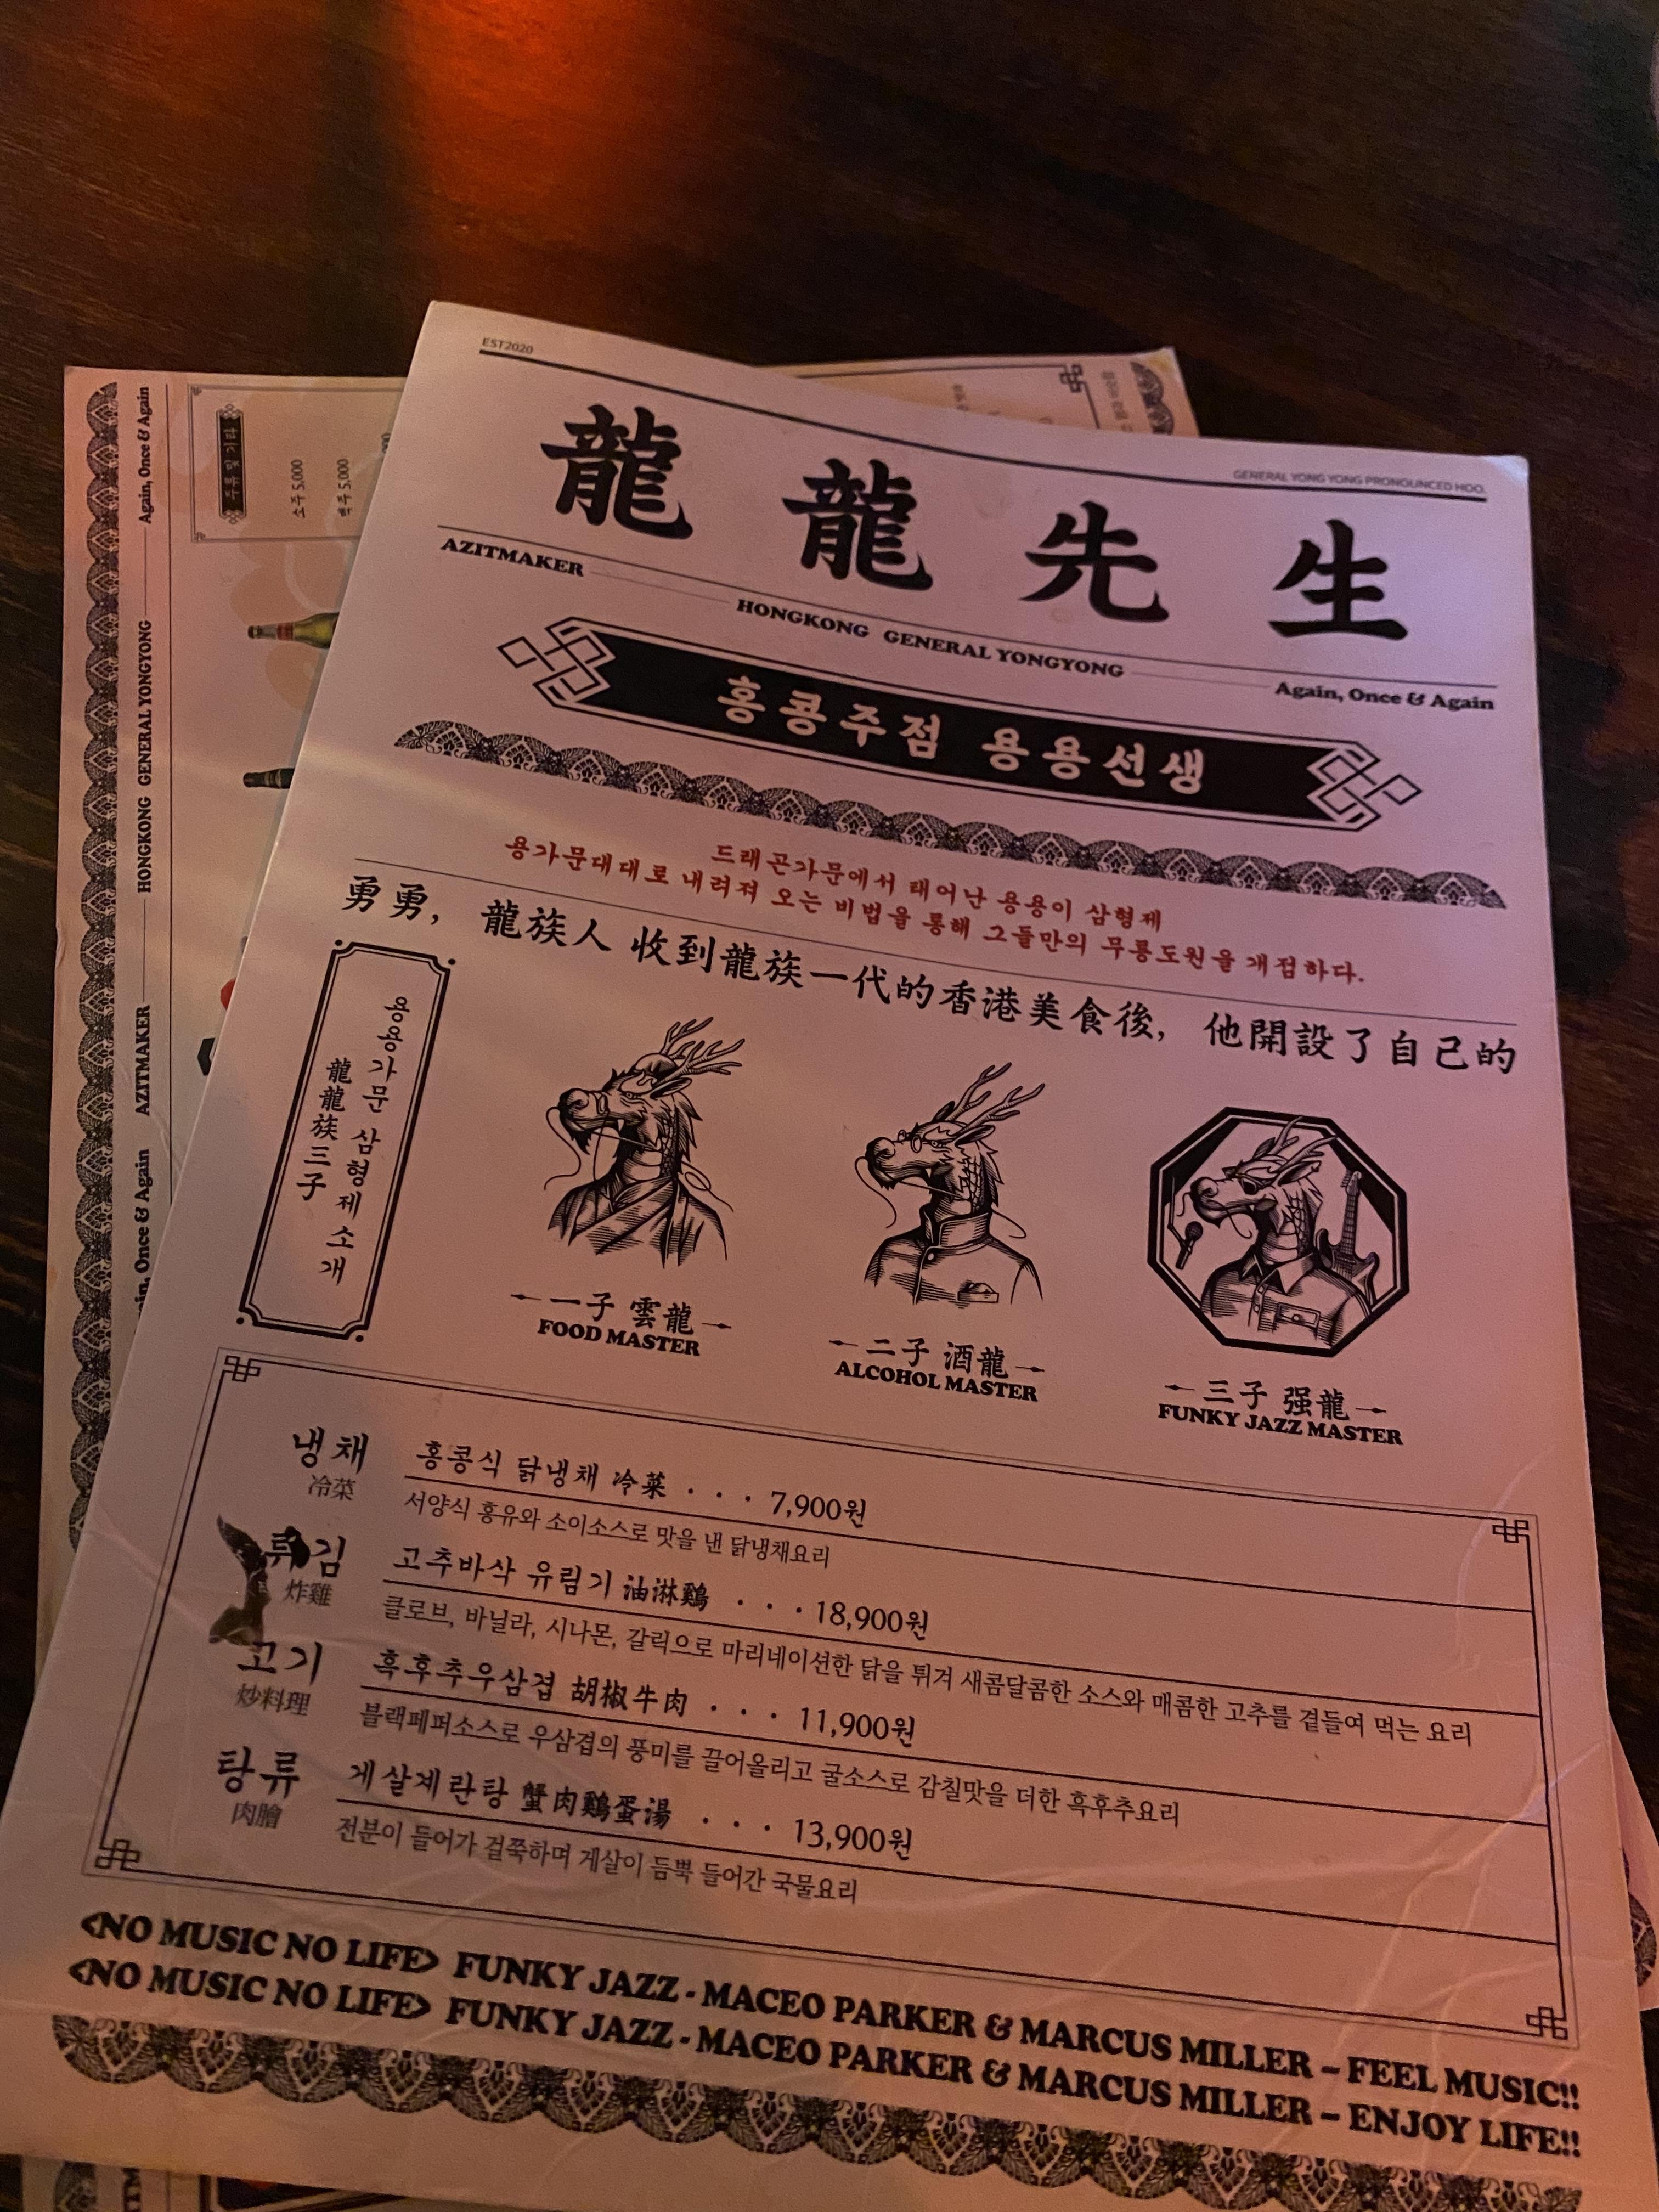 EST2020
GENERAL YONG YONG PRONOUNCED HOO.
龍龍先生
AZITMAKER
HONGKONG GENERAL YONGYONG
Again, Once & Again
홍콩주점 용용선생
드래곤가문에서 태어난 용용이 삼형제
용가문대대로 내려져 오는 비법을 통해 그들만의 무릉도원을 개점하다.
勇勇, 龍族人 收到龍族一代的香港美食後, 他開設了自己的
용용가문 삼형제 소개
龍龍族三子
一子 雲龍
FOOD MASTER
二子 酒龍
ALCOHOL MASTER
三子 强龍
FUNKY JAZZ MASTER
냉채
冷菜
홍콩식 닭냉채 冷菜 · · · 7,900원
서양식 홍유와 소이소스로 맛을 낸 닭냉채요리
튀김
炸雞
고추바삭 유림기 油淋鷄 · · · 18,900원
클로브, 바닐라, 시나몬, 갈릭으로 마리네이션한 닭을 튀겨 새콤달콤한 소스와 매콤한 고추를 곁들여 먹는 요리
고기
炒料理
흑후추우삼겹 胡椒牛肉 · · · 11,900원
블랙페퍼소스로 우삼겹의 풍미를 끌어올리고 굴소스로 감칠맛을 더한 흑후추요리
탕류
肉膾
게살계란탕 蟹肉鷄蛋湯 · · · 13,900원
전분이 들어가 걸쭉하며 게살이 듬뿍 들어간 국물요리
<NO MUSIC NO LIFE> FUNKY JAZZ - MACEO PARKER & MARCUS MILLER – FEEL MUSIC!!
<NO MUSIC NO LIFE> FUNKY JAZZ - MACEO PARKER & MARCUS MILLER – ENJOY LIFE!!
Again, Once & Again
HONGKONG GENERAL YONGYONG
AZITMAKER
Once & Again
주류 및 기타
소주 5,000
맥주 5,000